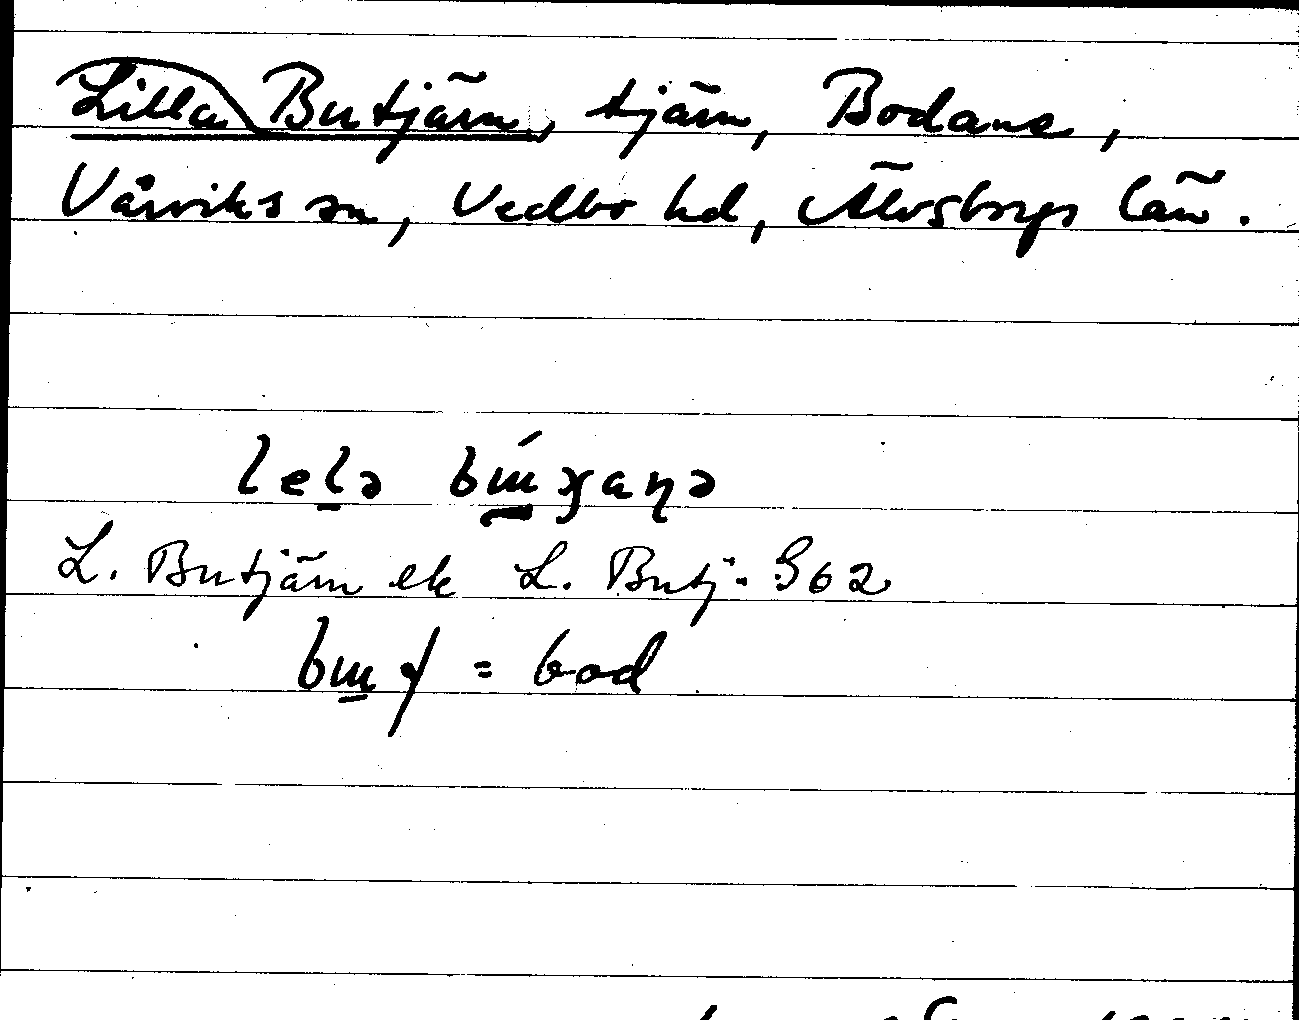 Lilla Butjärn, tjärn, Bodane,
Vårviks sn, Vedbo hd, Älvsborgs län.
lelə bɯ́ɟaɳə
L. Butjärn ek L. Butj. G62
bɯ f = bod